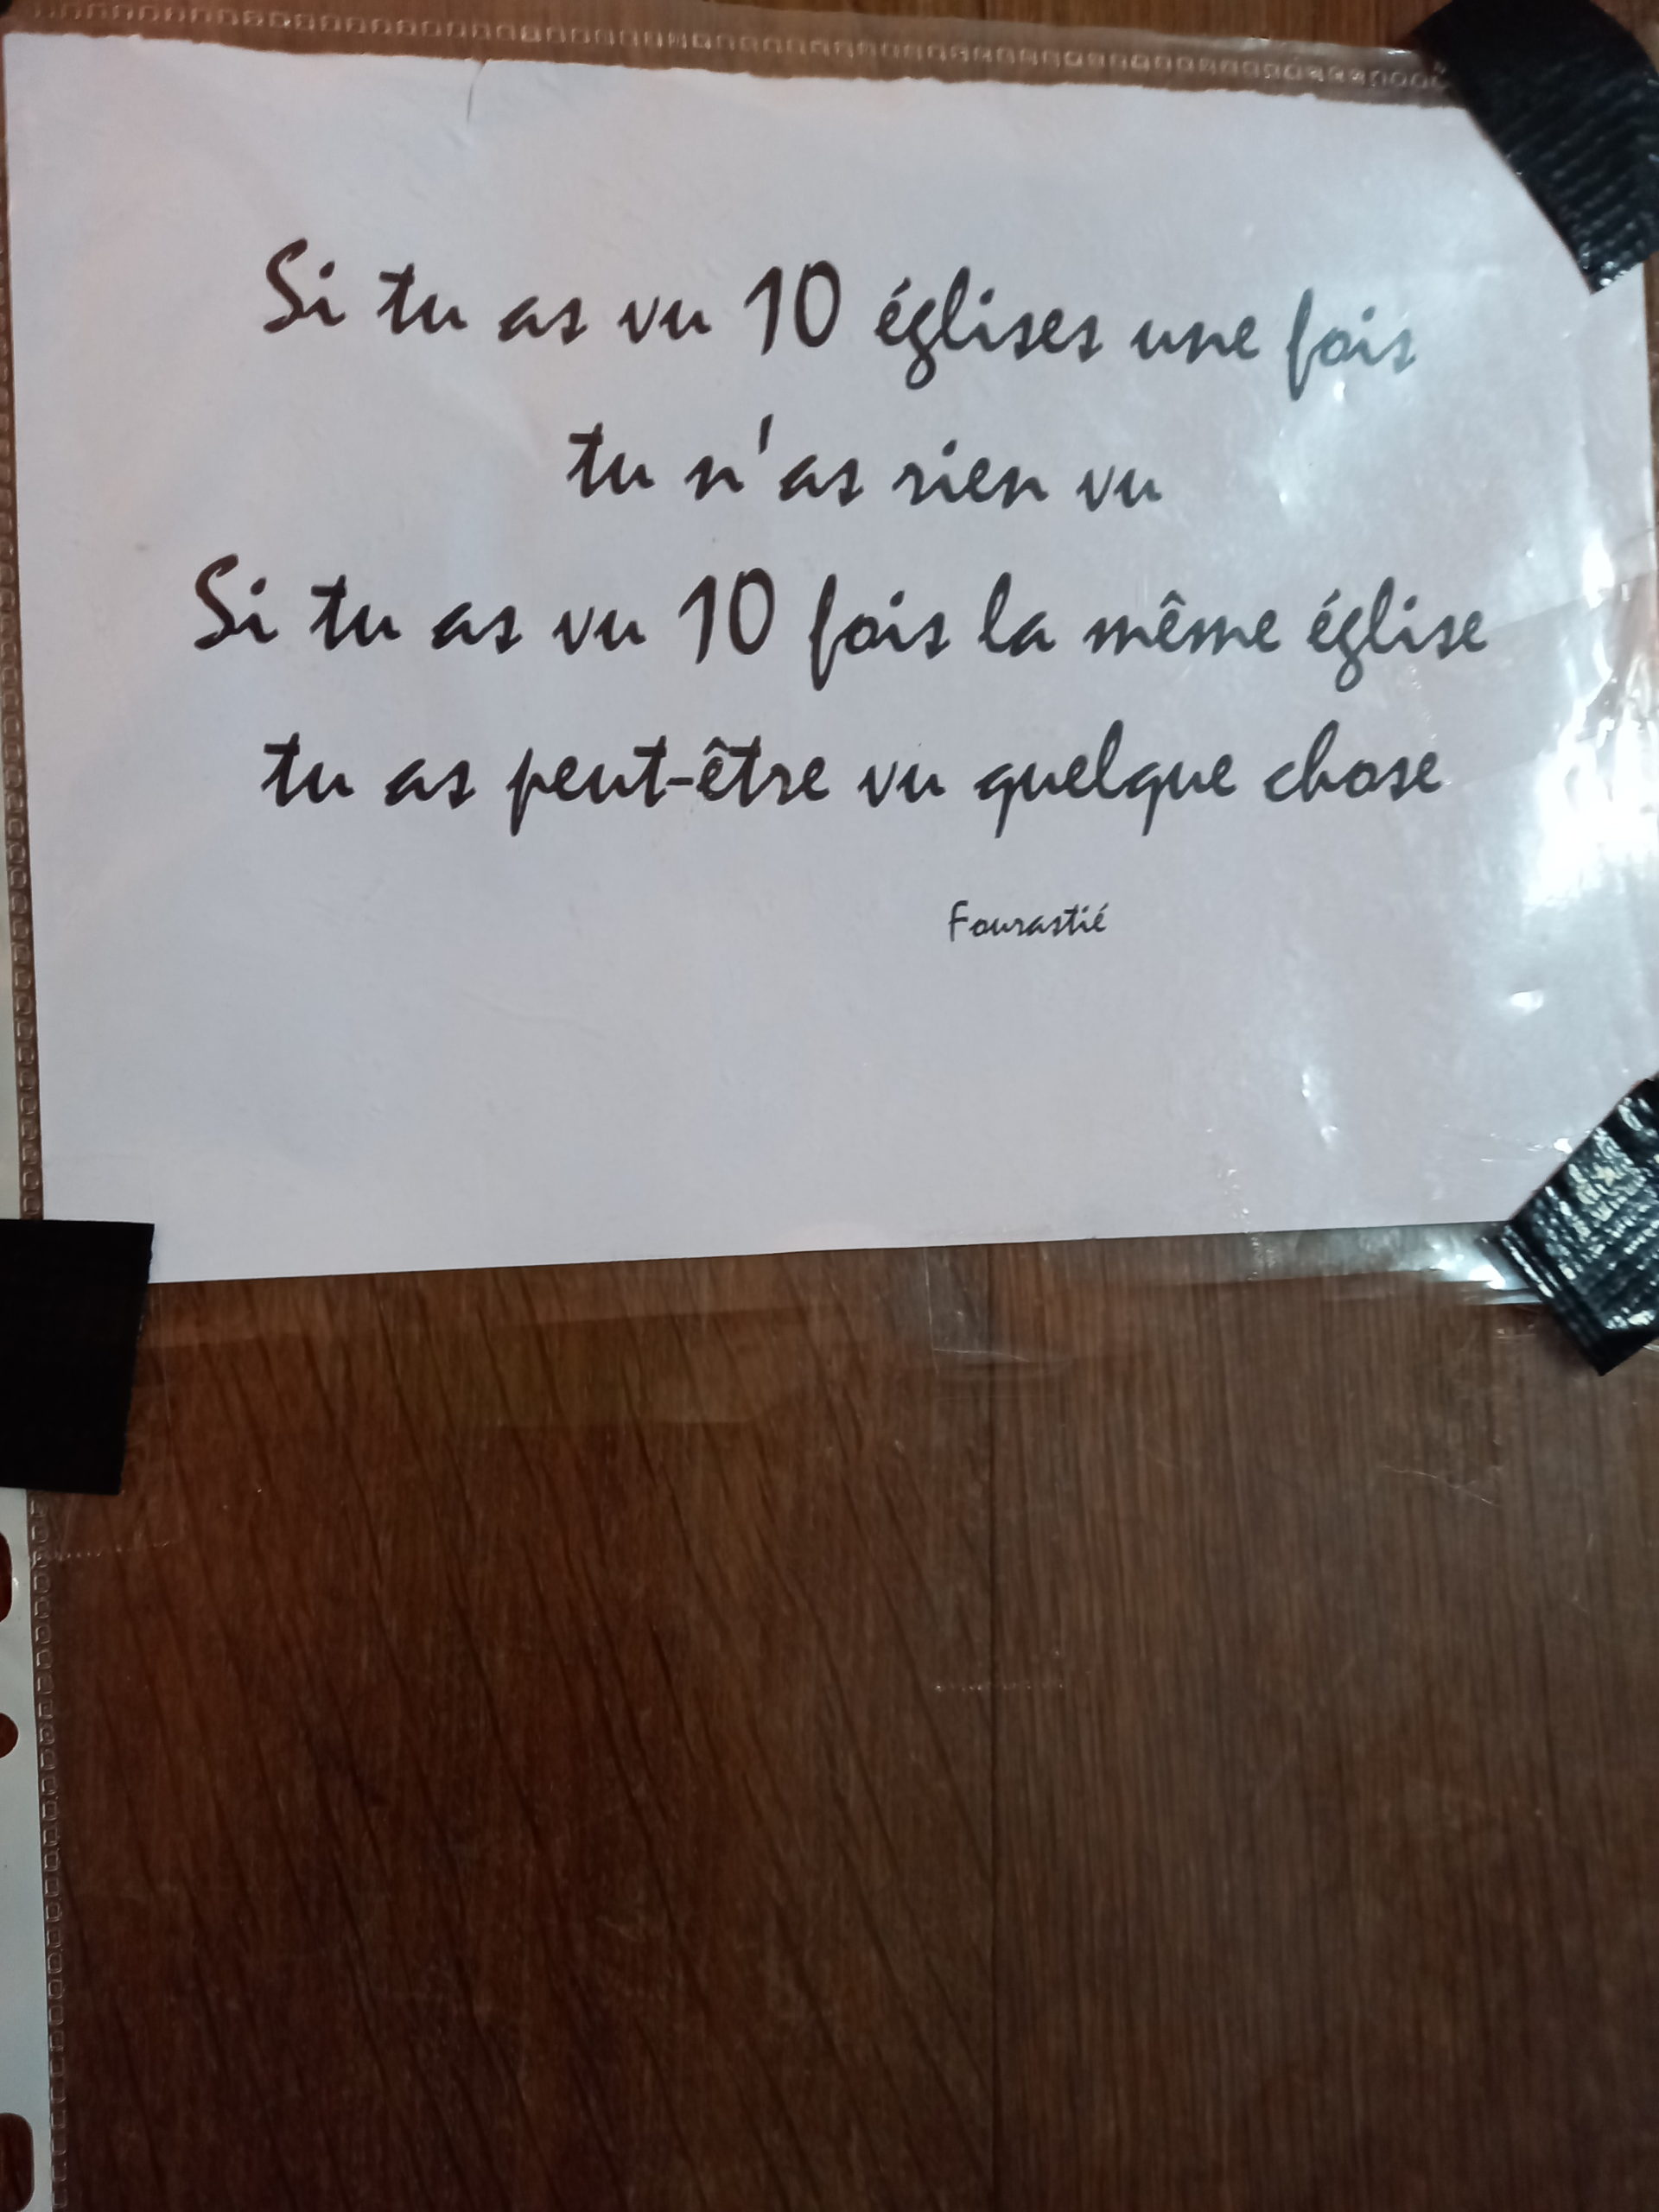 Si tu as vu 10 églises une fois
tu n'as rien vu
Si tu as vu 10 fois la même église
tu as peut-être vu quelque chose
Fourastié